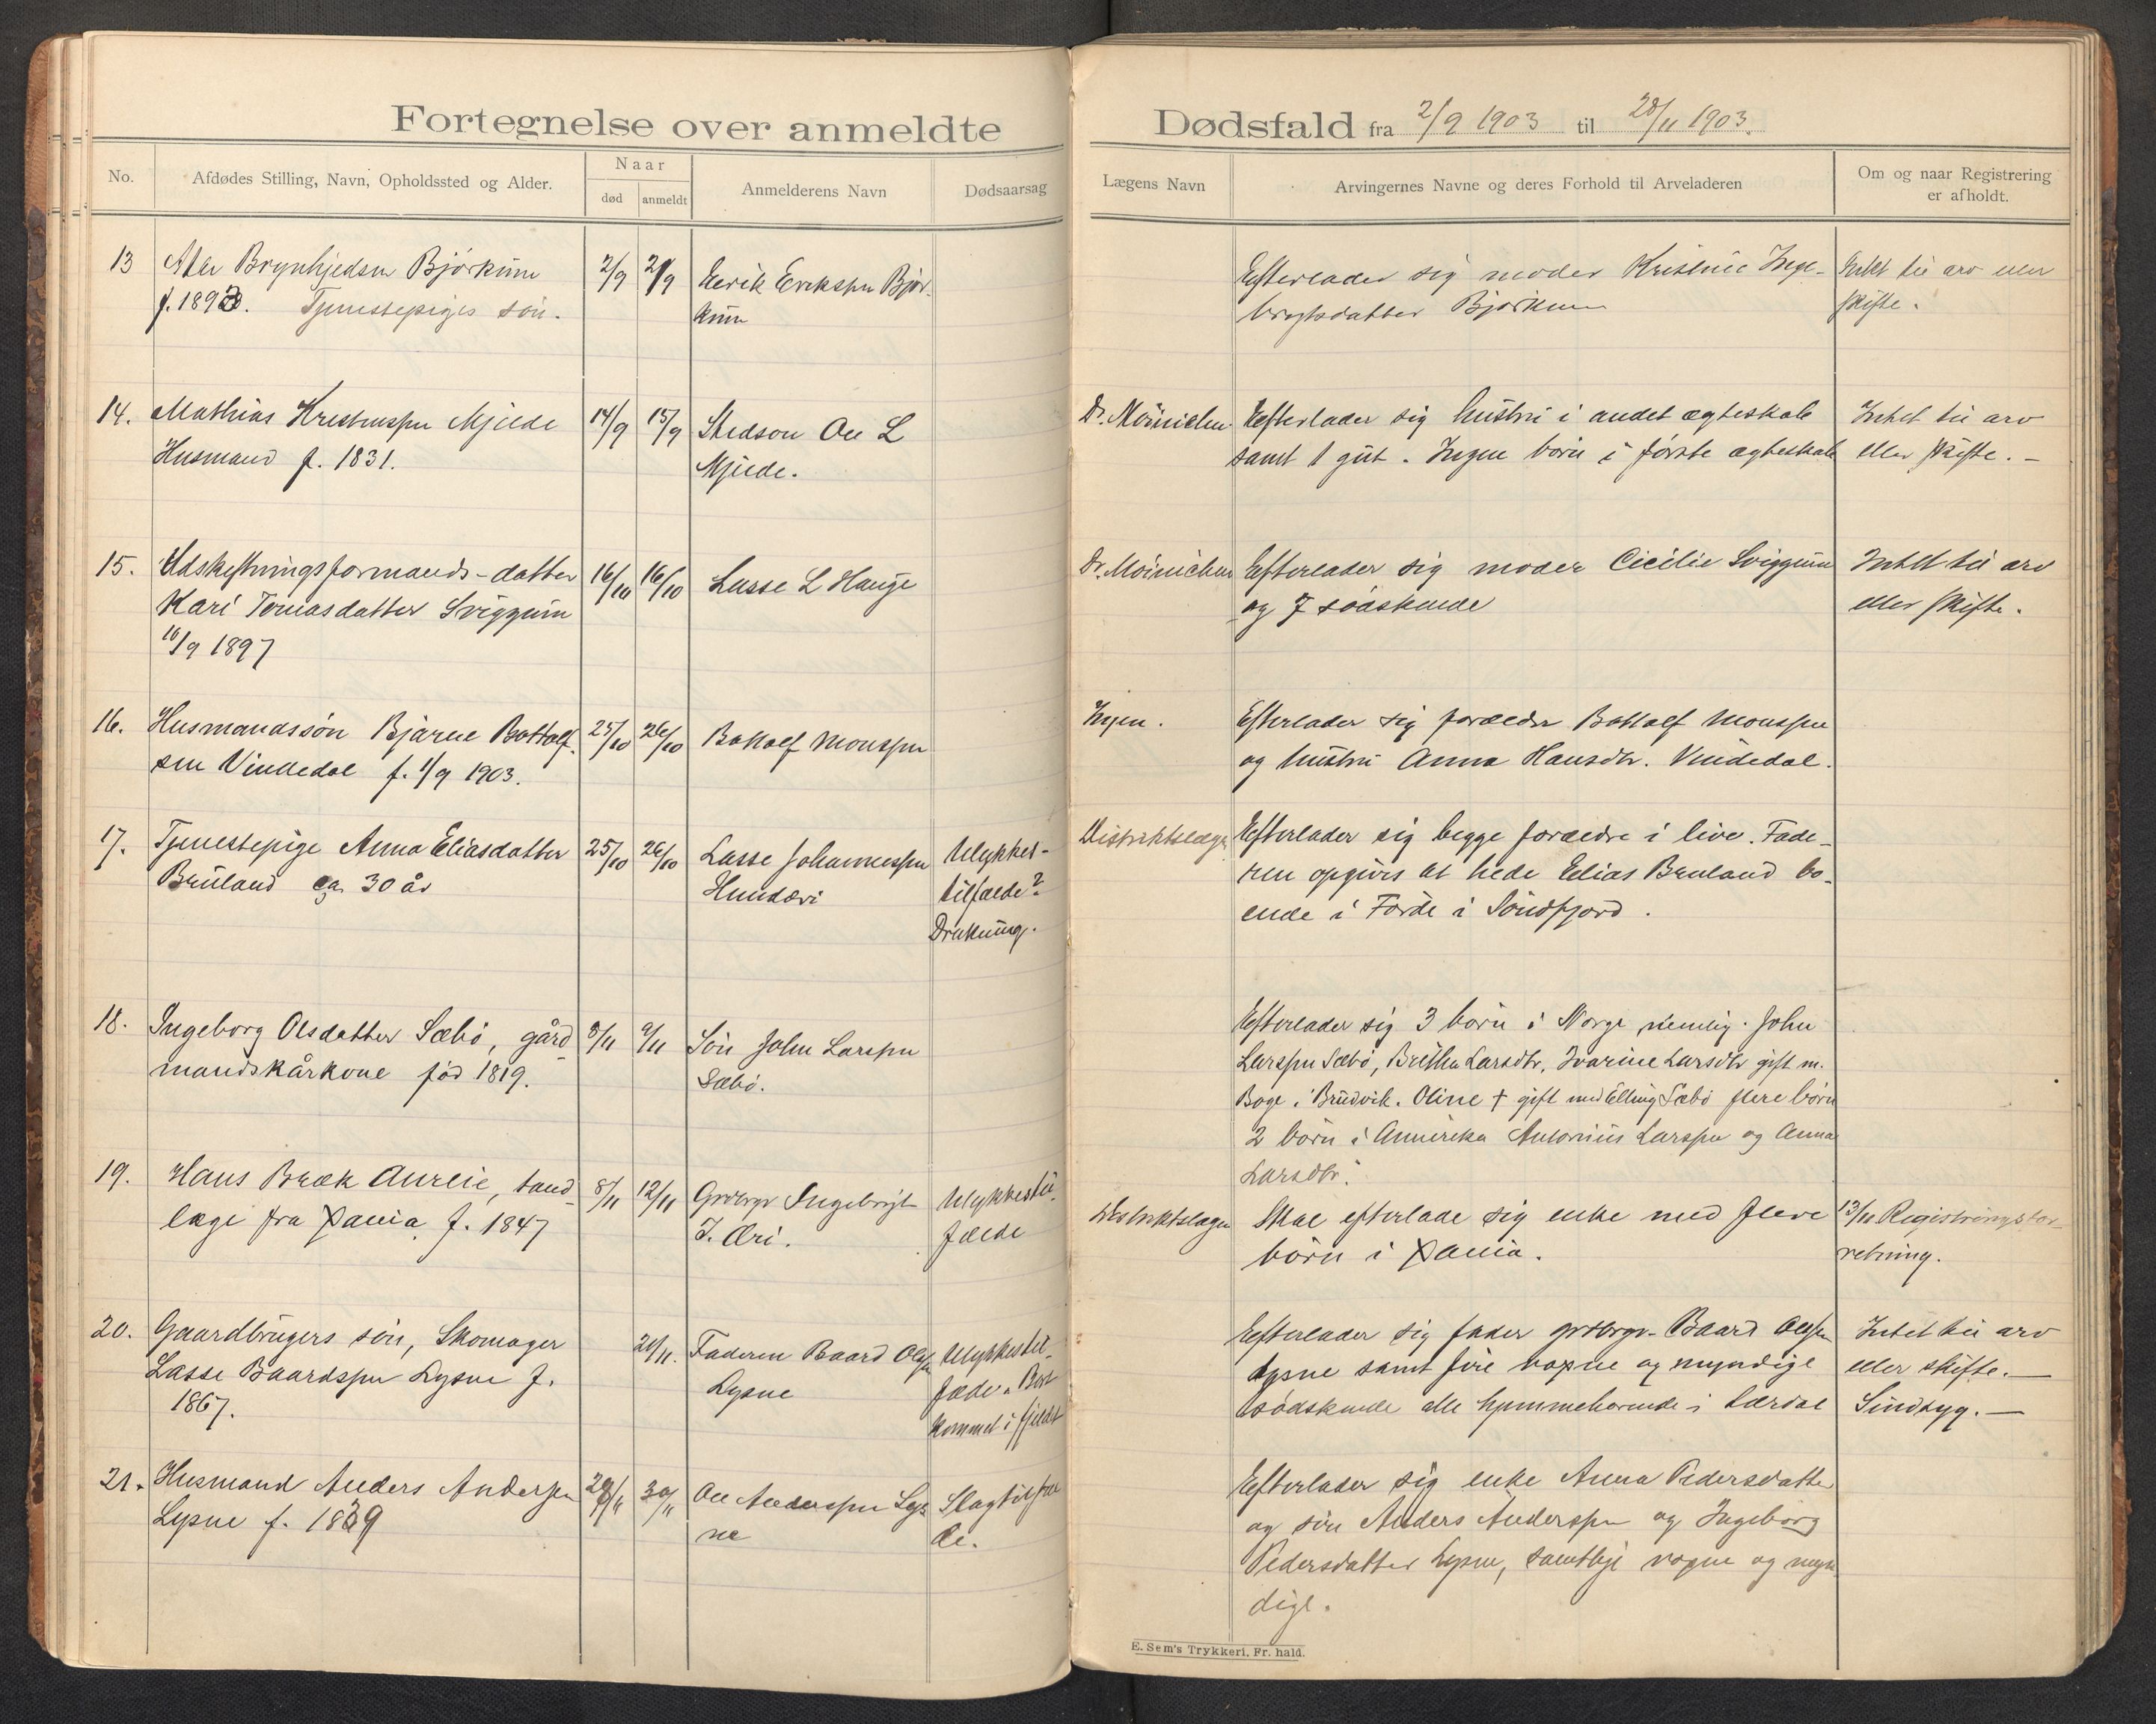 Fortegnelse over anmeldte Dødsfald fra 2/9 1903 til 28/11 1903.
No.
Afdødes Stilling, Navn, Opholdssted og Alder.
Naar
død
anmeldt
Anmelderens Navn
Dødsaarsag
Lægens Navn
Arvingernes Navne og deres Forhold til Arveladeren
Om og naar Registrering
er afholdt.
13
Brynhjedsen Bjørkum
f. 1893. Tjenestepiges søn.
2/9
Eerik Erikspn Bjør-
kum
Efterlader sig moder Kristine Inge-
brigtsdatter Bjørkum
Intet til arv eller
skifte.
14.
Mathias Kristenspn Mjelde
Husmand f. 1831.
14/9
15/9
Stedson Ole L
Mjelde.
Dr. Moinichen
Eefterlader sig hustru i andet ægteskab
samt 1 gut. Ingen børn i første ægteskab
Intet til arv
eller skifte. -
15.
Udskiftningsformands-datter
Kari Tomasdatter Sviggum
10/9 1897
16/10
16/10
Lasse L Hauge
Dr. Moinichen
Efterlader sig moder Cicilie Sviggum
og 7 södskende
Intet til arv
eller skifte.
16.
Husmandssøn Bjarne Bottolf-
sen Vindedal f. 1/9 1903.
25/10
26/10
Bottolf Monspn
Ingen.
Efterlader sig forældre Bottolf Monspn
og hustru Anna Hansdtr. Vindedal.
17.
Tjenestepige Anna Eliasdatter
Bruland ca 30 år
25/10
26/10
Lasse Johannespn
Hunderi
Ulykkes-
tilfælde?
Drukning.
Distriktslægen
Eefterlader sig begge forældre i live. Fade-
ren opgives at hede Eelias Bruland bo-
ende i Førde i Söndfjord.
18.
Ingeborg Olsdatter Sæbö, gård-
mandskårkone född 1819.
8/11
9/11
Sön John Larspn
Sæbö.
Eefterlader sig 3 børn i Norge nemlig. John
Larspn Sæbö, Britha Larsdtr, Ivarine Larsdtr gift m.
Boge i Brudvik. Oline † gift med Elling Sæbö flere børn
2 børn i Amerika Antonius Larspn og Anna
Larsdtr.
19.
Hans Bræk Aurlie, tand-
læge fra Xania. f. 1847
8/11
12/11
Grdbrgr Ingebrigt
J. Æri.
Ulykkestil-
fælde
Distriktslægen
Skal efterlade sig enke med flere
børn i Xania.
13/11 Registringsfor-
retning.
20.
Gaardbrugers sön, Skomager
Lasse Baardspn Lysne f.
1867.
Faderen Baard Olspn
Lysne
Ulykkestil-
fælde. Bort
kommet i fjeldet
Eefterlader sig fader grdbrgr. Baard Olspn
Lysne samt fire voxne og myndige
södskende alle hjemmehørende i Lærdal
Intet til arv
eller skifte. -
Sindsyg. -
21.
Husmand Anders Anderspn
Lysne f. 1839
28/11
30/11
Ole Anderspn Lys-
ne
Slagtilfæl
de.
Eefterlader sig enke Anna Pedersdatter
og sön Anders Anderspn og Ingeborg
Pedersdatter Lysne, samtlige voxne og myn-
dige.
E. Sem's Trykkeri, Fr. hald.